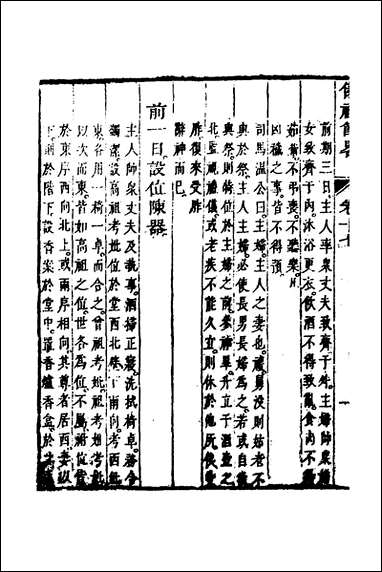 儀禮節畧 卷十七
前期三日主人率衆丈夫致齊于外主婦帥衆婦
女致齊于內沐浴更衣飲酒不得致亂食肉不得
茹葷不弔喪不聽樂凡
凶穢之事皆不得預
司馬溫公曰主婦主人之妻也禮舅沒則姑老不
與於祭主人主婦必使長男長婦為之若或自欲
與祭則特位於主婦之前參神畢升立于酒壺之
北監視禮儀或老疾不能久立則休於他所俟受
胙復來受胙
辭神而已
前一日設位陳器
主人帥衆丈夫及執事洒掃正寢洗拭椅卓務令
蠲潔設高祖考妣位於堂西北壁下南向考西妣
東各用一椅一卓而合之曾祖考妣祖考妣考妣
以次而東皆如高祖之位世各為位不屬祔位皆
於東序西向北上或兩序相向其尊者居西妻以
下則於階下設香案於堂中置香爐香盒於